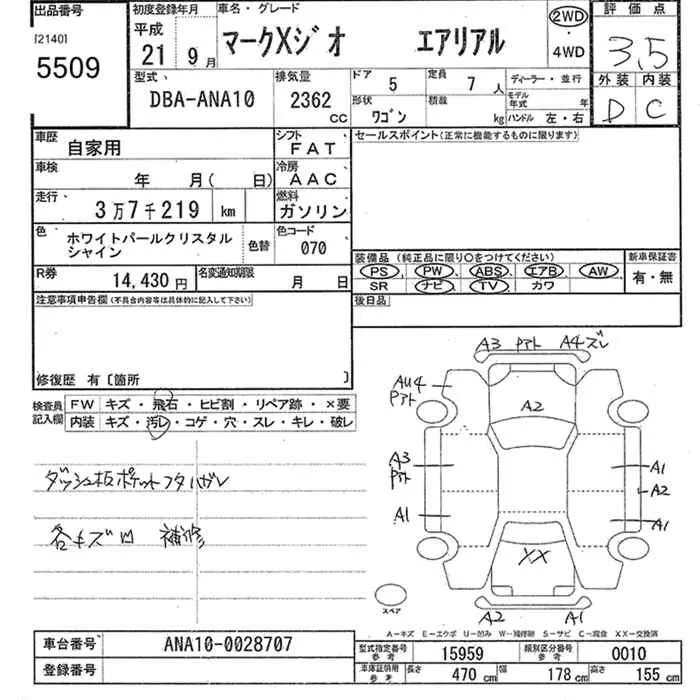 出品番号
[2140]
5509
初度登録年月
平成
21 9月
車名・グレード
マークXジオ エアリアル
2WD
・
4WD
評価点
3.5
外装 内装
D C
型式、
DBA-ANA10
排気量
2362
CC
ドア 5
定員 7人
形状 ワゴン
積載 kg
ディーラー・並行
モデル年式 年
ハンドル 左・右
車歴 自家用
シフト FAT
車検 年 月( 日)
冷房 AAC
走行、 3万7千219 km
燃料 ガソリン
色 ホワイトパールクリスタル
シャイン
色替
色コード 070
R券 14,430円
名変通知期限 月 日
セールスポイント(正常に機能するものに限ります)
装備品 (純正品に限り○をつけてください)
PS PW ABS エアB AW
SR ナビ TV カワ
新車保証書
有・無
後日品
注意事項申告欄(不具合内容等は具体的に記入して下さい)
修復歴 有〔箇所 〕
検査員記入欄
FW キズ・飛石・ヒビ割・リペア跡・×要
内装 キズ・汚レ・コゲ・穴・スレ・キレ・破レ
ダッシュ板ポケットフタハガレ
各キズ凹 補修
A3 Pアト A4ズレ
AU4
Pアト
A2
A3
Pアト
A1
A1
A2
A1
XX
A2 A1
スペア
A-キズ E-エクボ U-凹み W-補修跡 S-サビ C-腐食 XX-交換済
車台番号 ANA10-0028707
登録番号
型式指定番号 参考 15959
類別区分番号 参考 0010
車庫証明用 参考 長さ 470cm 幅 178cm 高さ 155cm